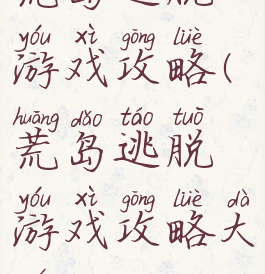 yóu xì gōng lüè
游戏攻略(
huāng dǎo táo tuō
荒岛逃脱
yóu xì gōng lüè dà
游戏攻略大